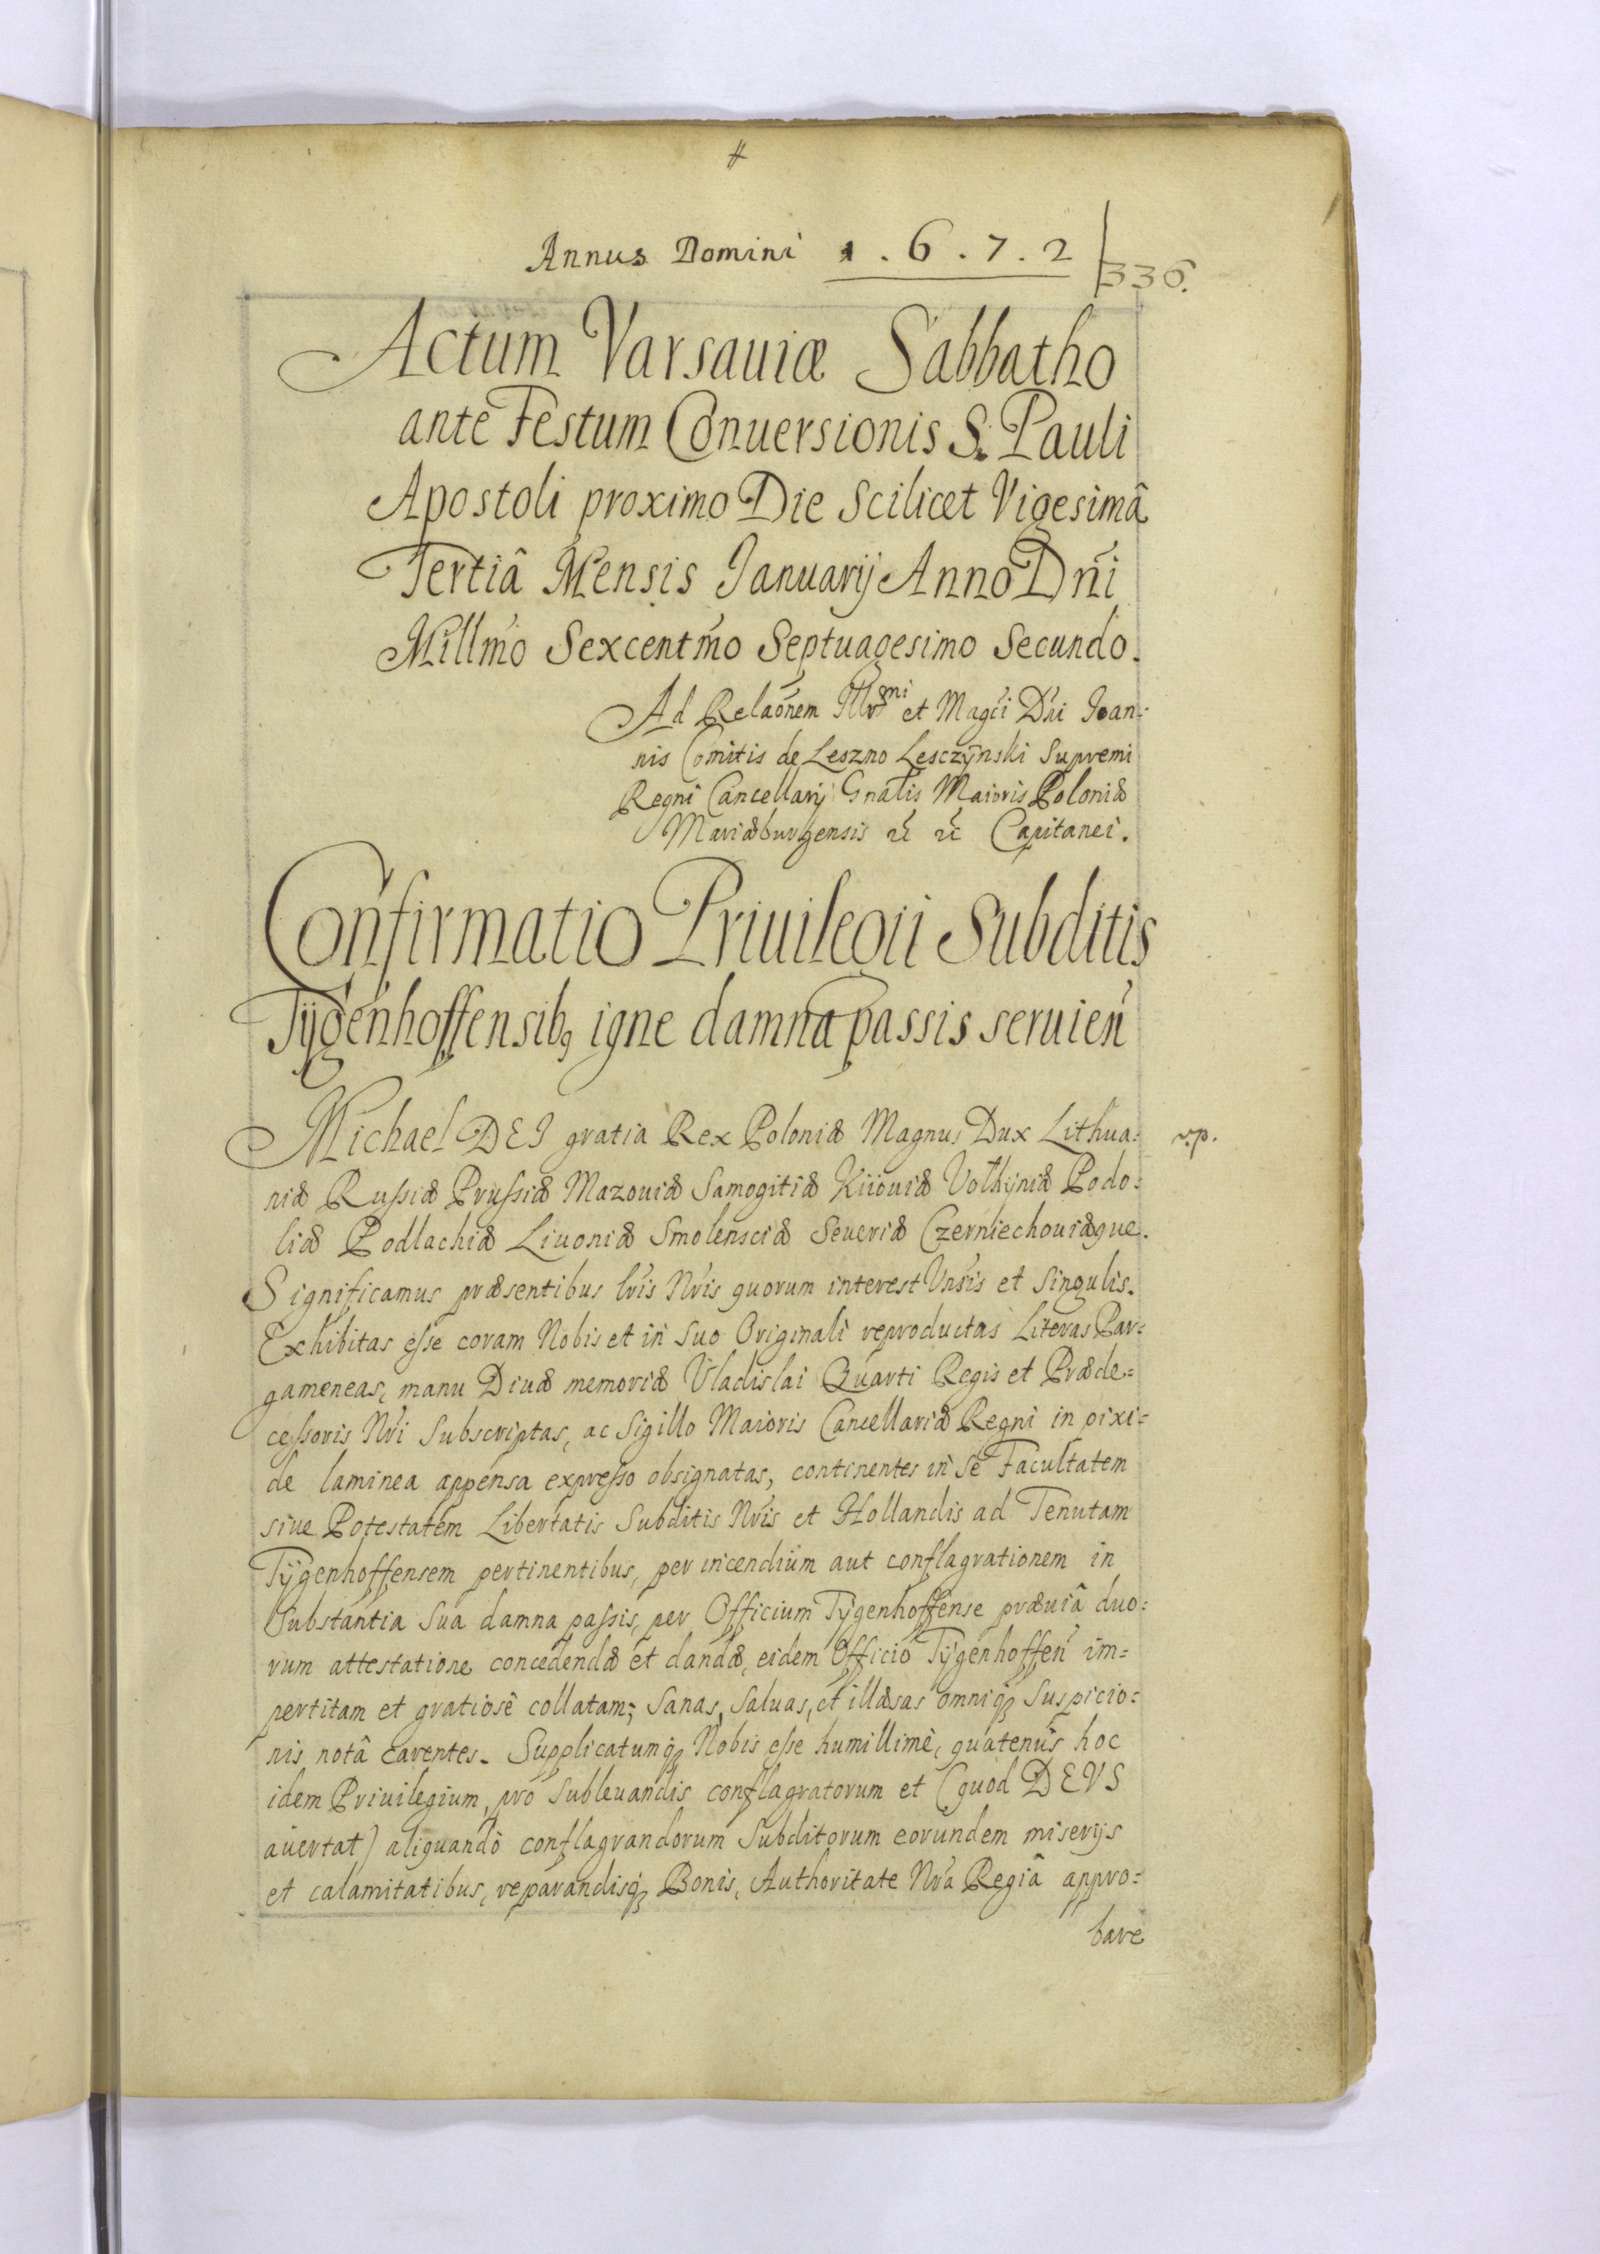 #
Annus Domini 1.6.7.2
336.
Actum Varsauiæ Sabbatho
ante Festum Conuersionis S. Pauli
Apostoli proximo Die Scilicet Vigesimâ
Tertiâ Mensis Januarij Anno Dñi
Millm̃o Sexcentm̃o Septuagesimo Secundo.
Ad Relaõnem Illr̃mi et Magci Dñi Joan:
nis Comitis de Leszno Lesczÿnski Supremi
Regni Cancellarij Gnalis Maioris Poloniæ
Mariæburgensis Capitanei.
Confirmatio Priuilegii Subditis
Tÿgenhoffensibq igne damna passis seruieñ
Michael DEI gratia Rex Poloniæ Magnus Dux Lithua:
niæ Russiæ Prussiæ Mazouiæ Samogitiæ Kiiouiæ Volhÿniæ Podo:
liæ Podlachiæ Liuoniæ Smolensciæ Seueriæ Czerniechouiæque.
Significamus præsentibus lr̃is Nr̃is quorum interest Vnr̃is et Singulis.
Exhibitas esse coram Nobis et in Suo Originali reproductas Literas Par:
gameneas, manu Diuæ memoriæ Vladislai Quarti Regis et Præde:
cessoris Nr̃i Subscriptas, ac Sigillo Maioris Cancellariæ Regni in pixi:
de laminea appensa expresso obsignatas, continentes in Se Facultatem
siue Potestatem Libertatis Subditis Nr̃is et Hollandis ad Tenutam
Tÿgenhoffensem pertinentibus, per incendium aut conflagrationem in
Substantia Sua damna passis, per Officium Tÿgenhoffense præuiâ duo:
rum attestatione concedendæ et dandæ, eidem Officio Tÿgenhoffeñ im:
pertitam et gratiosè collatam; Sanas, Saluas, et illæsas omniq; Suspicio:
nis notâ carentes. Supplicatumq; Nobis esse humillimè, quatenus hoc
idem Priuilegium, pro Subleuandis conflagratorum et (quod DEVS
auertat) aliquandò conflagrandorum Subditorum eorundem miserijs
et calamitatibus, reparandisq; Bonis, Authoritate Nr̃a Regiâ appro:
bare